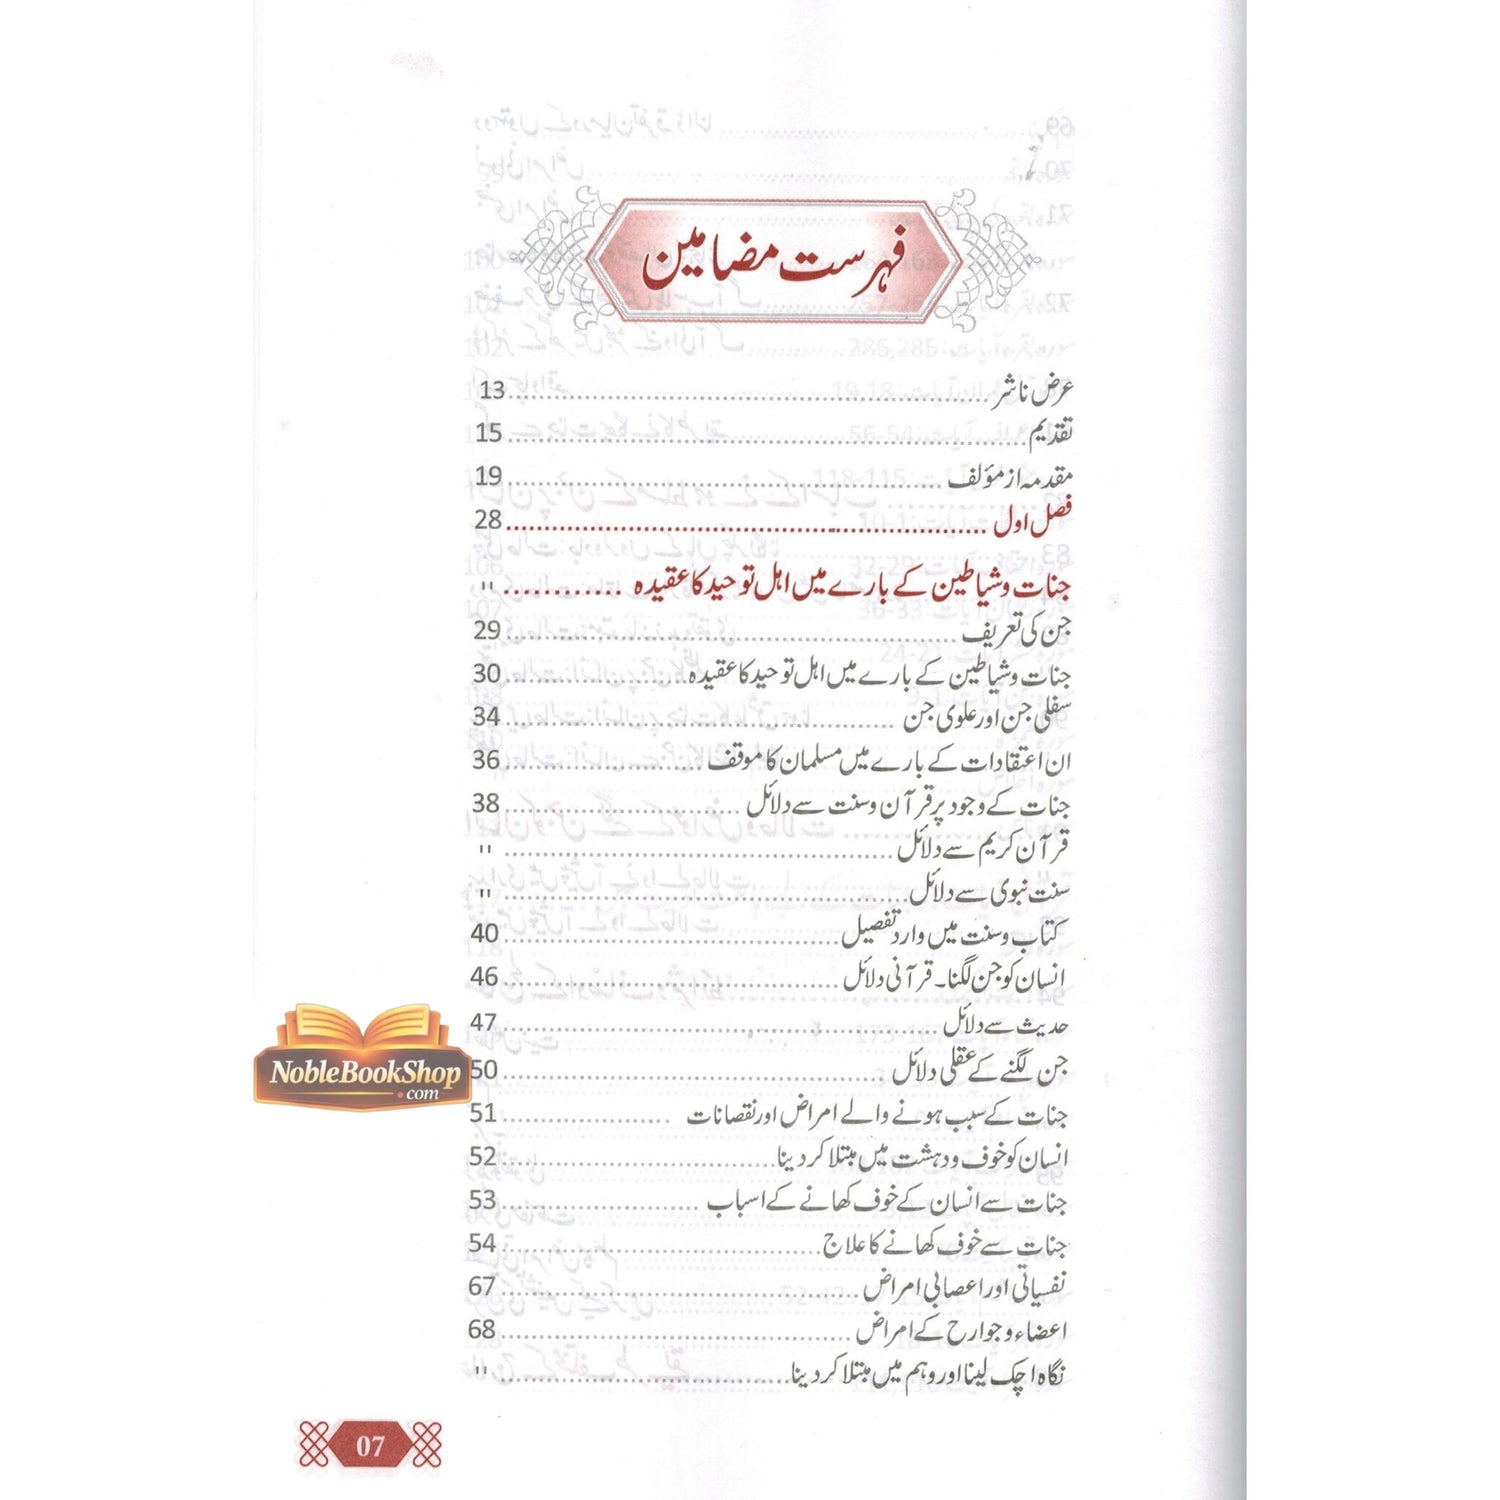 فہرست مضامین
عرض ناشر 13
تقدیم 15
مقدمہ از مؤلف 19
فصل اول 28
جنات و شیاطین کے بارے میں اہل توحید کا عقیدہ "
جن کی تعریف 29
جنات و شیاطین کے بارے میں اہل توحید کا عقیدہ 30
سفلی جن اور علوی جن 34
ان اعتقادات کے بارے میں مسلمان کا موقف 36
جنات کے وجود پر قرآن و سنت سے دلائل 38
قرآن کریم سے دلائل "
سنت نبوی سے دلائل "
کتاب و سنت میں وارد تفصیل 40
انسان کو جن لگنا۔ قرآنی دلائل 46
حدیث سے دلائل 47
جن لگنے کے عقلی دلائل 50
جنات کے سبب ہونے والے امراض اور نقصانات 51
انسان کو خوف و دہشت میں مبتلا کر دینا 52
جنات سے انسان کے خوف کھانے کے اسباب 53
جنات سے خوف کھانے کا علاج 54
نفسیاتی اور اعصابی امراض 67
اعضاء و جوارح کے امراض 68
نگاہ اچک لینا اور وہم میں مبتلا کر دینا "
NobleBookShop
.com
07